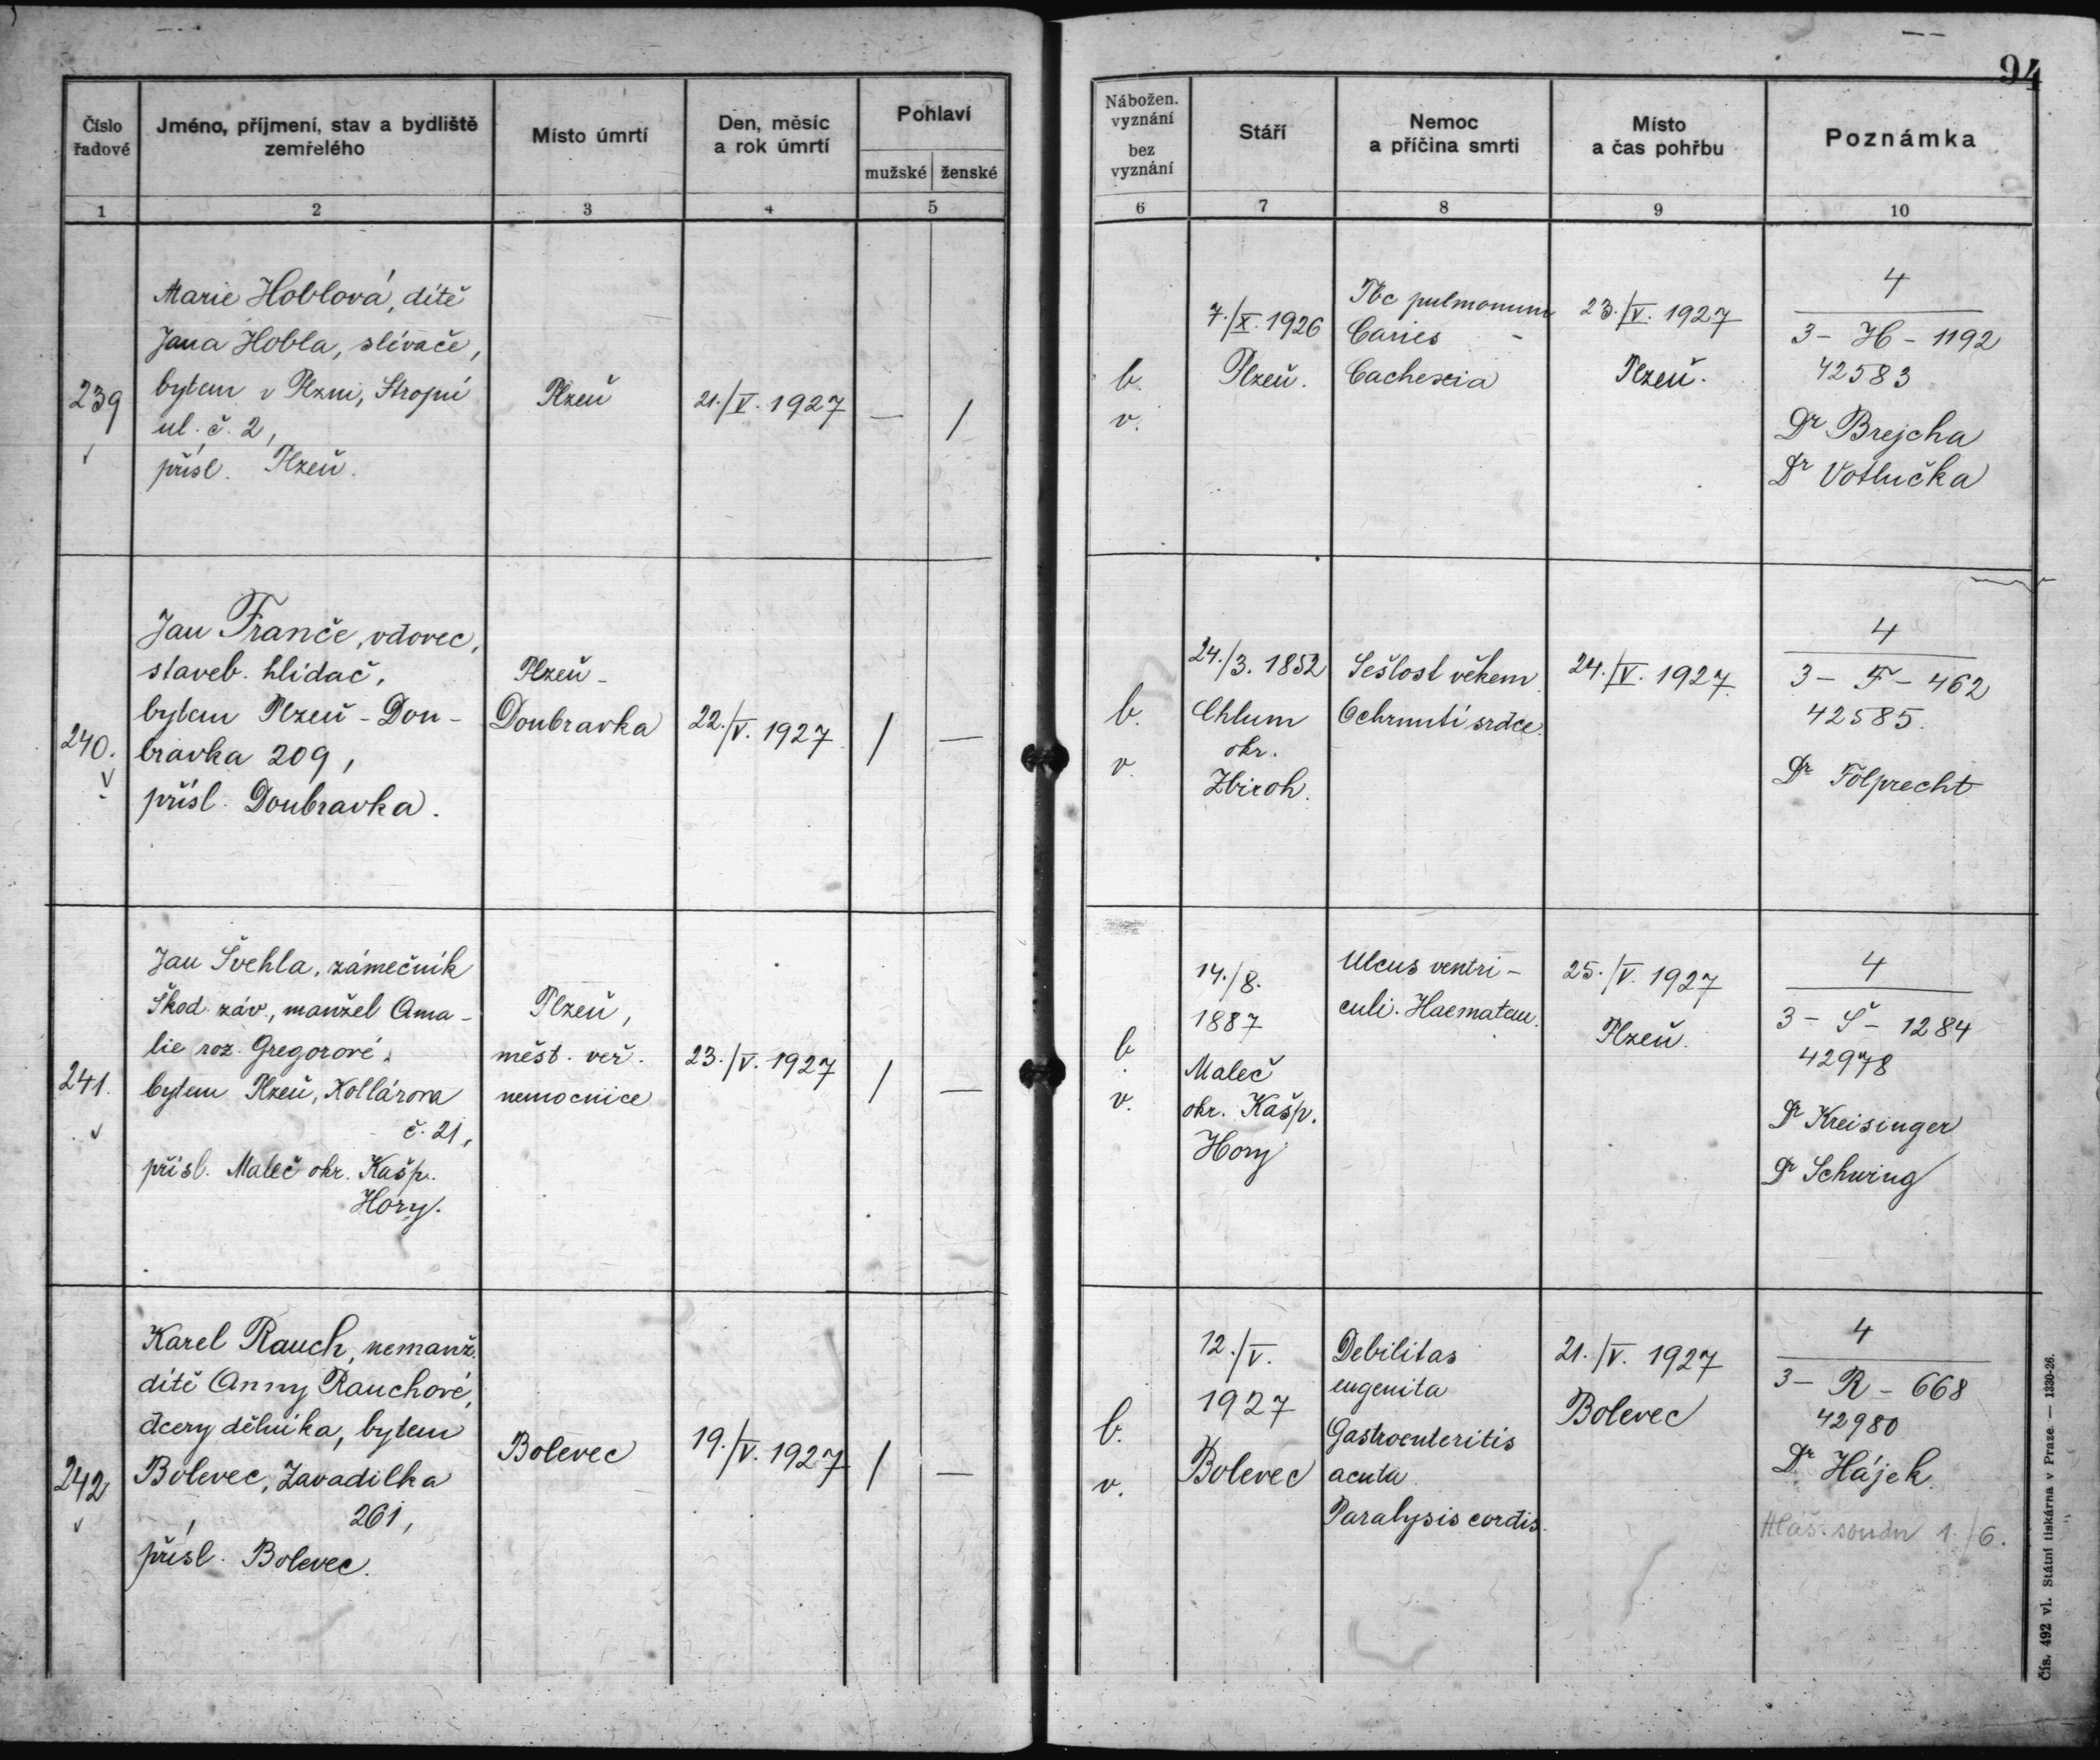 94
Číslo řadové
Jméno, příjmení, stav a bydliště
zemřelého
Místo úmrtí
Den, měsíc
a rok úmrtí
Pohlaví
mužské ženské
Nábožen.
vyznání
bez
vyznání
Stáří
Nemoc
a příčina smrti
Místo
a čas pohřbu
Poznámka
1 2 3 4 5 6 7 8 9 10
239
Marie Hoblová, dítě
Jana Hobla, slévače,
bytem v Plzni, Stropní
ul. č. 2,
přísl. Plzeň.
Plzeň
21./V. 1927
— /
b.
v.
7./X. 1926
Plzeň.
Tbc pulmonum
Caries
Cachexia
23./V. 1927
Plzeň.
4
3 - H - 1192
42583
Dr Brejcha
Dr Votlučka
240.
Jan Franče, vdovec,
staveb. hlídač,
bytem Plzeň - Dou-
bravka 209,
přísl. Doubravka.
Plzeň -
Doubravka
22./V. 1927
/ —
b.
v.
24./3. 1852
Chlum
okr.
Zbiroh.
Sešlost věkem
Ochrnutí srdce.
24./V. 1927
4
3 - F - 462
42585.
Dr Folprecht
241.
Jan Švehla, zámečník
Škod. záv., manžel Ama-
lie roz. Gregorové,
bytem Plzeň, Kollárova
č. 21,
přísl. Maleč okr. Kašp.
Hory.
Plzeň,
měst. veř.
nemocnice
23./V. 1927
/ —
b.
v.
14./8.
1887
Maleč
okr. Kašp.
Hory
Ulcus ventri-
culi. Haematem.
25./V. 1927
Plzeň.
4
3 - Š - 1284
42978
Dr Kreisinger
Dr Schwing
242
Karel Rauch, nemanž.
dítě Anny Rauchové,
dcery dělníka, bytem
Bolevec, Zavadilka
261,
přísl. Bolevec.
Bolevec
19./V. 1927
/ —
b.
v.
12./V.
1927
Bolevec
Debilitas
eugenita
Gastroenteritis
acuta
Paralysis cordis.
21./V. 1927
Bolevec
4
3 - R - 668
42980
Dr Hájek.
Hláš. soudu 1./6.
Čís. 492 vl. Státní tiskárna v Praze. — 1330-26.